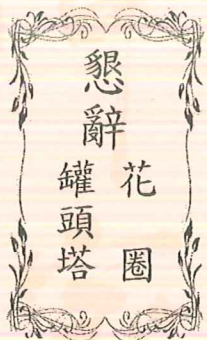 懇辭
花圈
罐頭塔